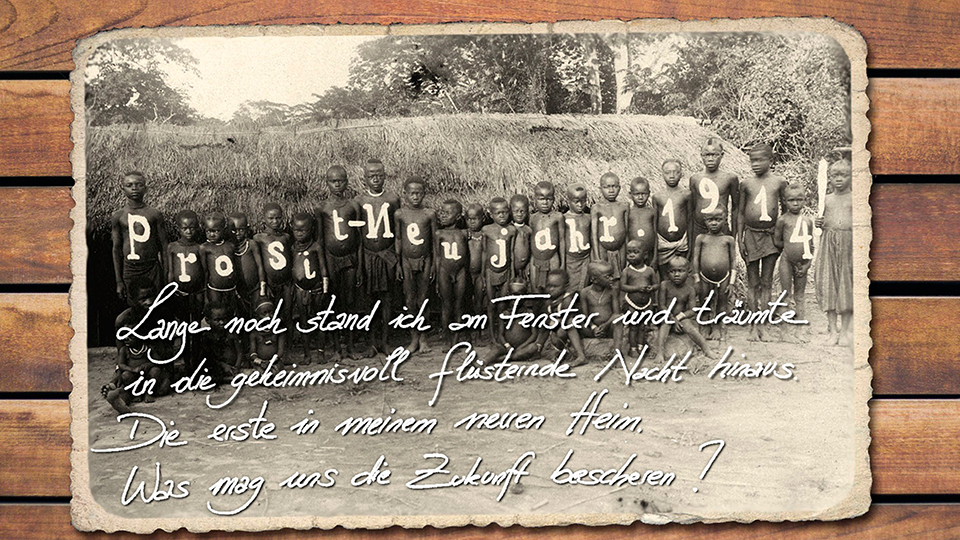 Prosit-Neujahr.1914
Lange noch stand ich am Fenster und träumte
in die geheimnisvoll flüsternde Nacht hinaus
Die erste in meinem neuen Heim.
Was mag uns die Zukunft bescheren?